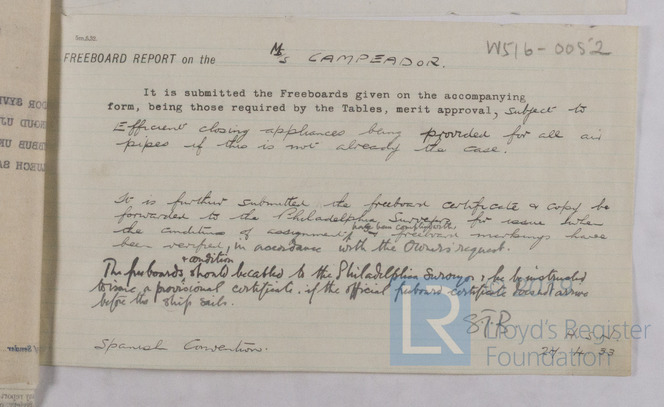 FREEBOARD REPORT on the M/S CAMPEADOR. W516-0052
It is submitted the Freeboards given on the accompanying
form, being those required by the Tables, merit approval, subject to
Efficient closing appliances being provided for all air
pipes if this is not already the case.
It is further submitted the freeboard certificate & copy be
forwarded to the Philadelphia Surveyors for issue when
the conditions of assignment have been complied with and freeboard markings have
been verified, in accordance with the Owners request.
The freeboards & condition should be cabled to the Philadelphia Surveyor & he be instructed
to issue a provisional certificate, if the official freeboard certificate does not arrive
before the ship sails.
STB
Spanish Convention.
24.4.33
© 2019
LR
Lloyd's Register
Foundation
of Sender